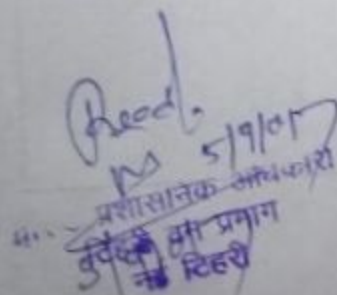 Recd.
5/9/07
प्रशासनिक अधिकारी
वन प्रभाग
नई टिहरी